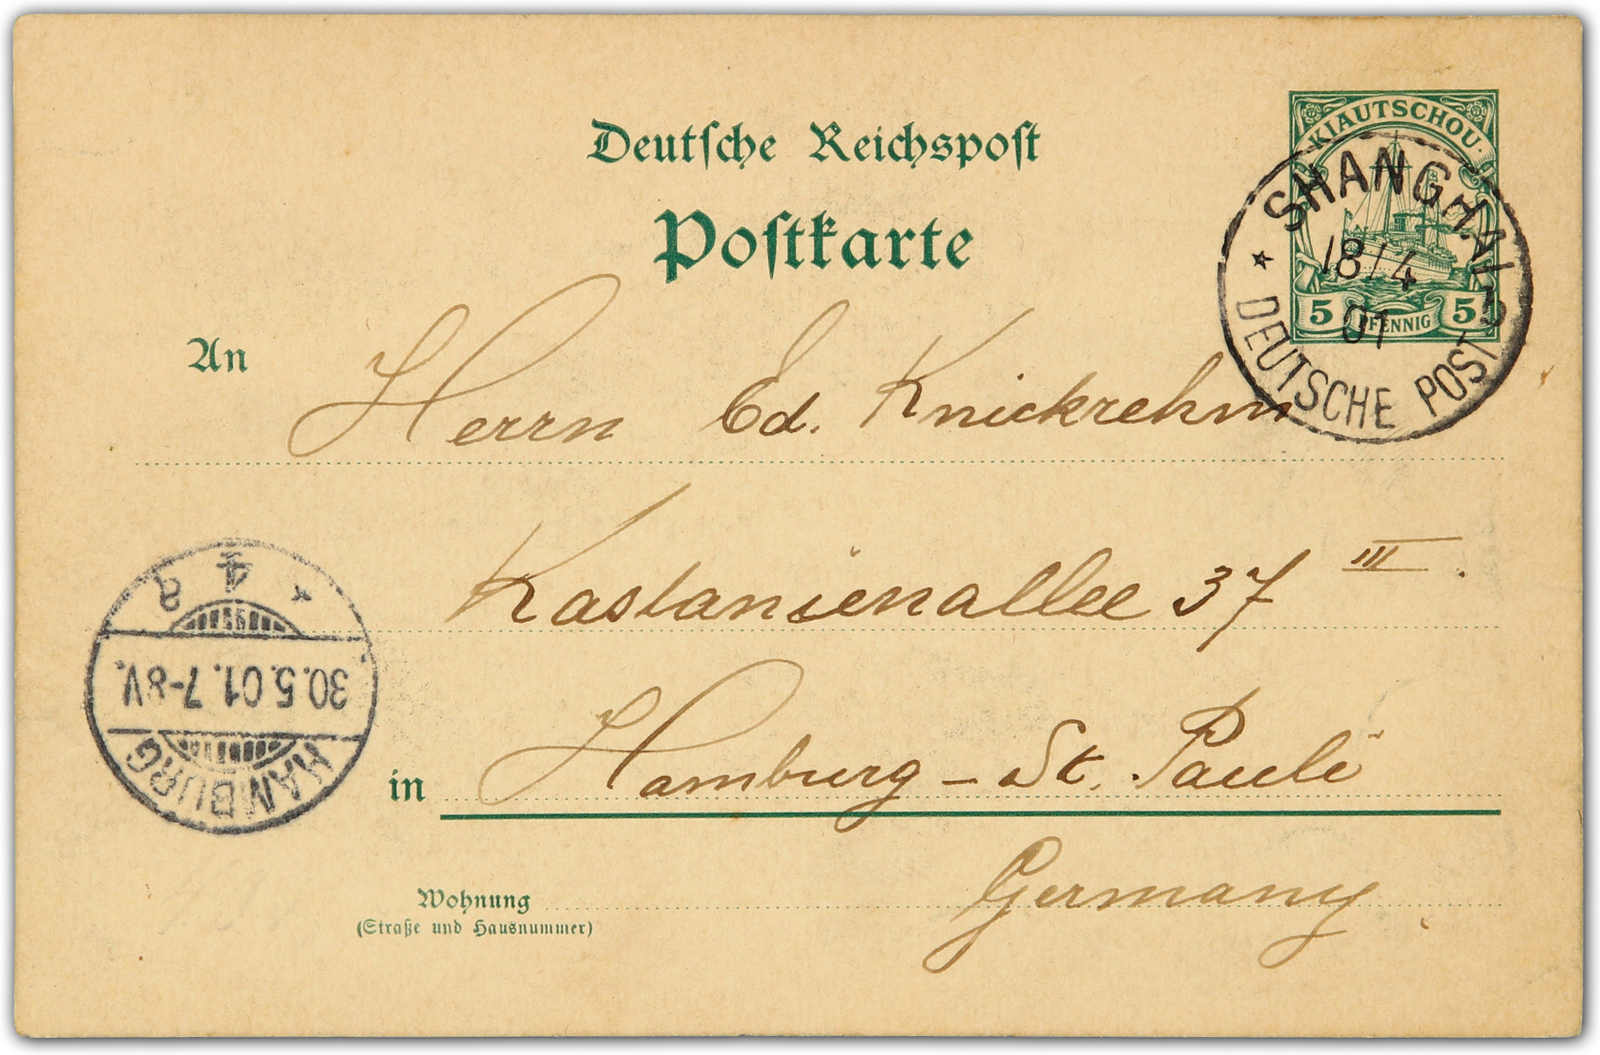 Deutsche Reichspost
Postkarte
KIAUTSCHOU
5 PFENNIG 5
SHANGHAI
18/4
01
* DEUTSCHE POST
An Herrn Ed. Knickrehm
Kastanienallee 37 III.
in Hamburg - St. Pauli
Germany
Wohnung
(Straße und Hausnummer)
HAMBURG
30.5.01.7-8V.
* 4 a